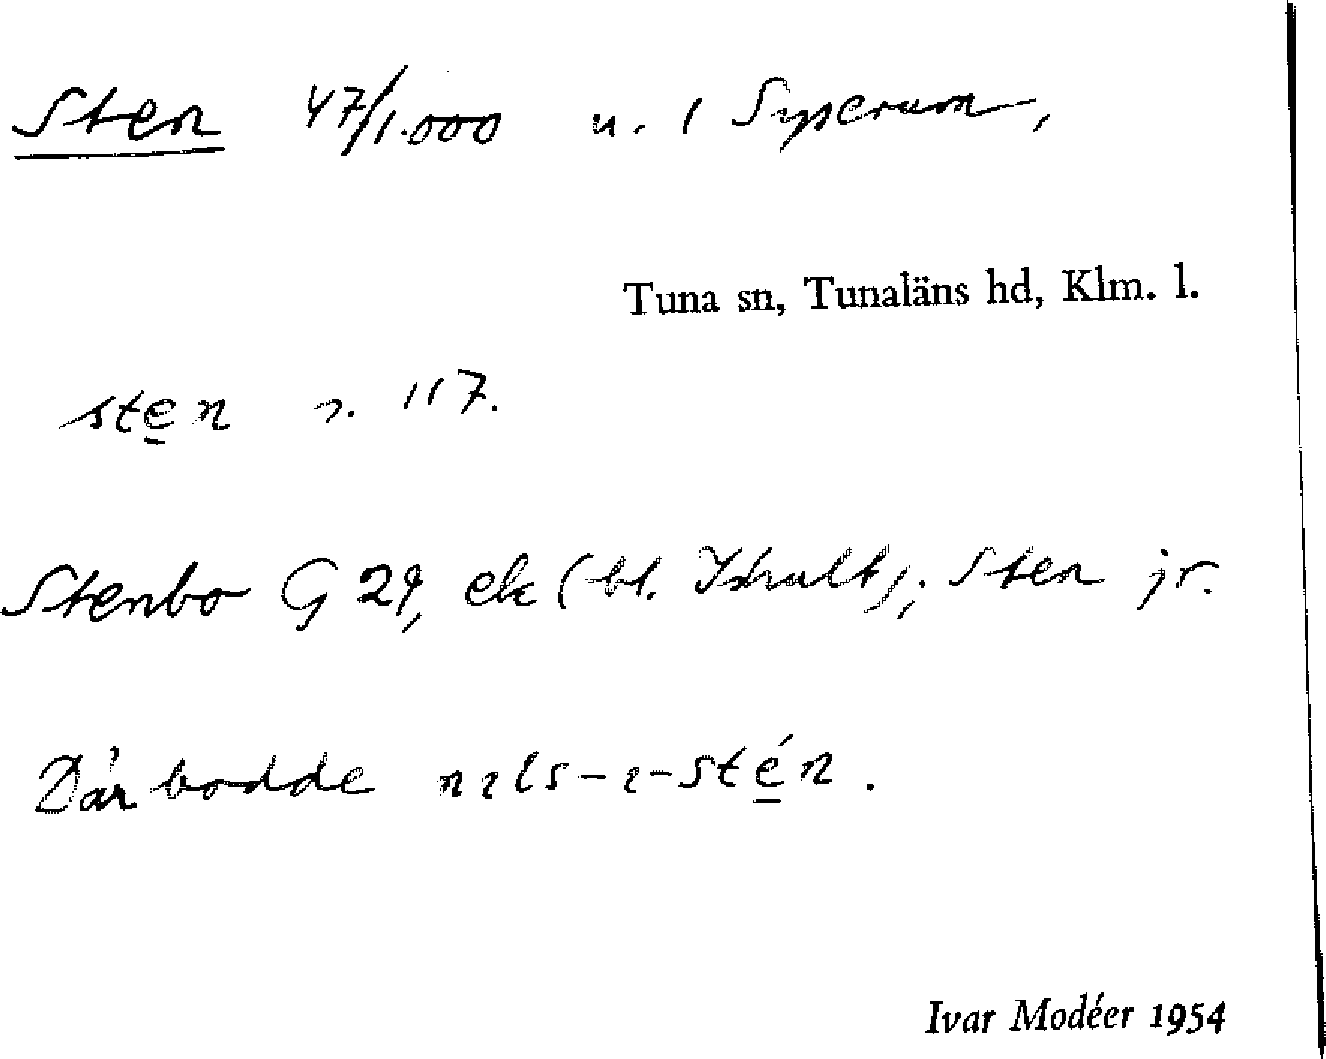 Sten 47/1.000 u. 1 Syserum,
Tuna sn, Tunaläns hd, Klm. l.
sten n. 117.
Stenbo G 29, ek (bl. Ishult); Sten jr.
Där bodde nils-i-stén.
Ivar Modéer 1954